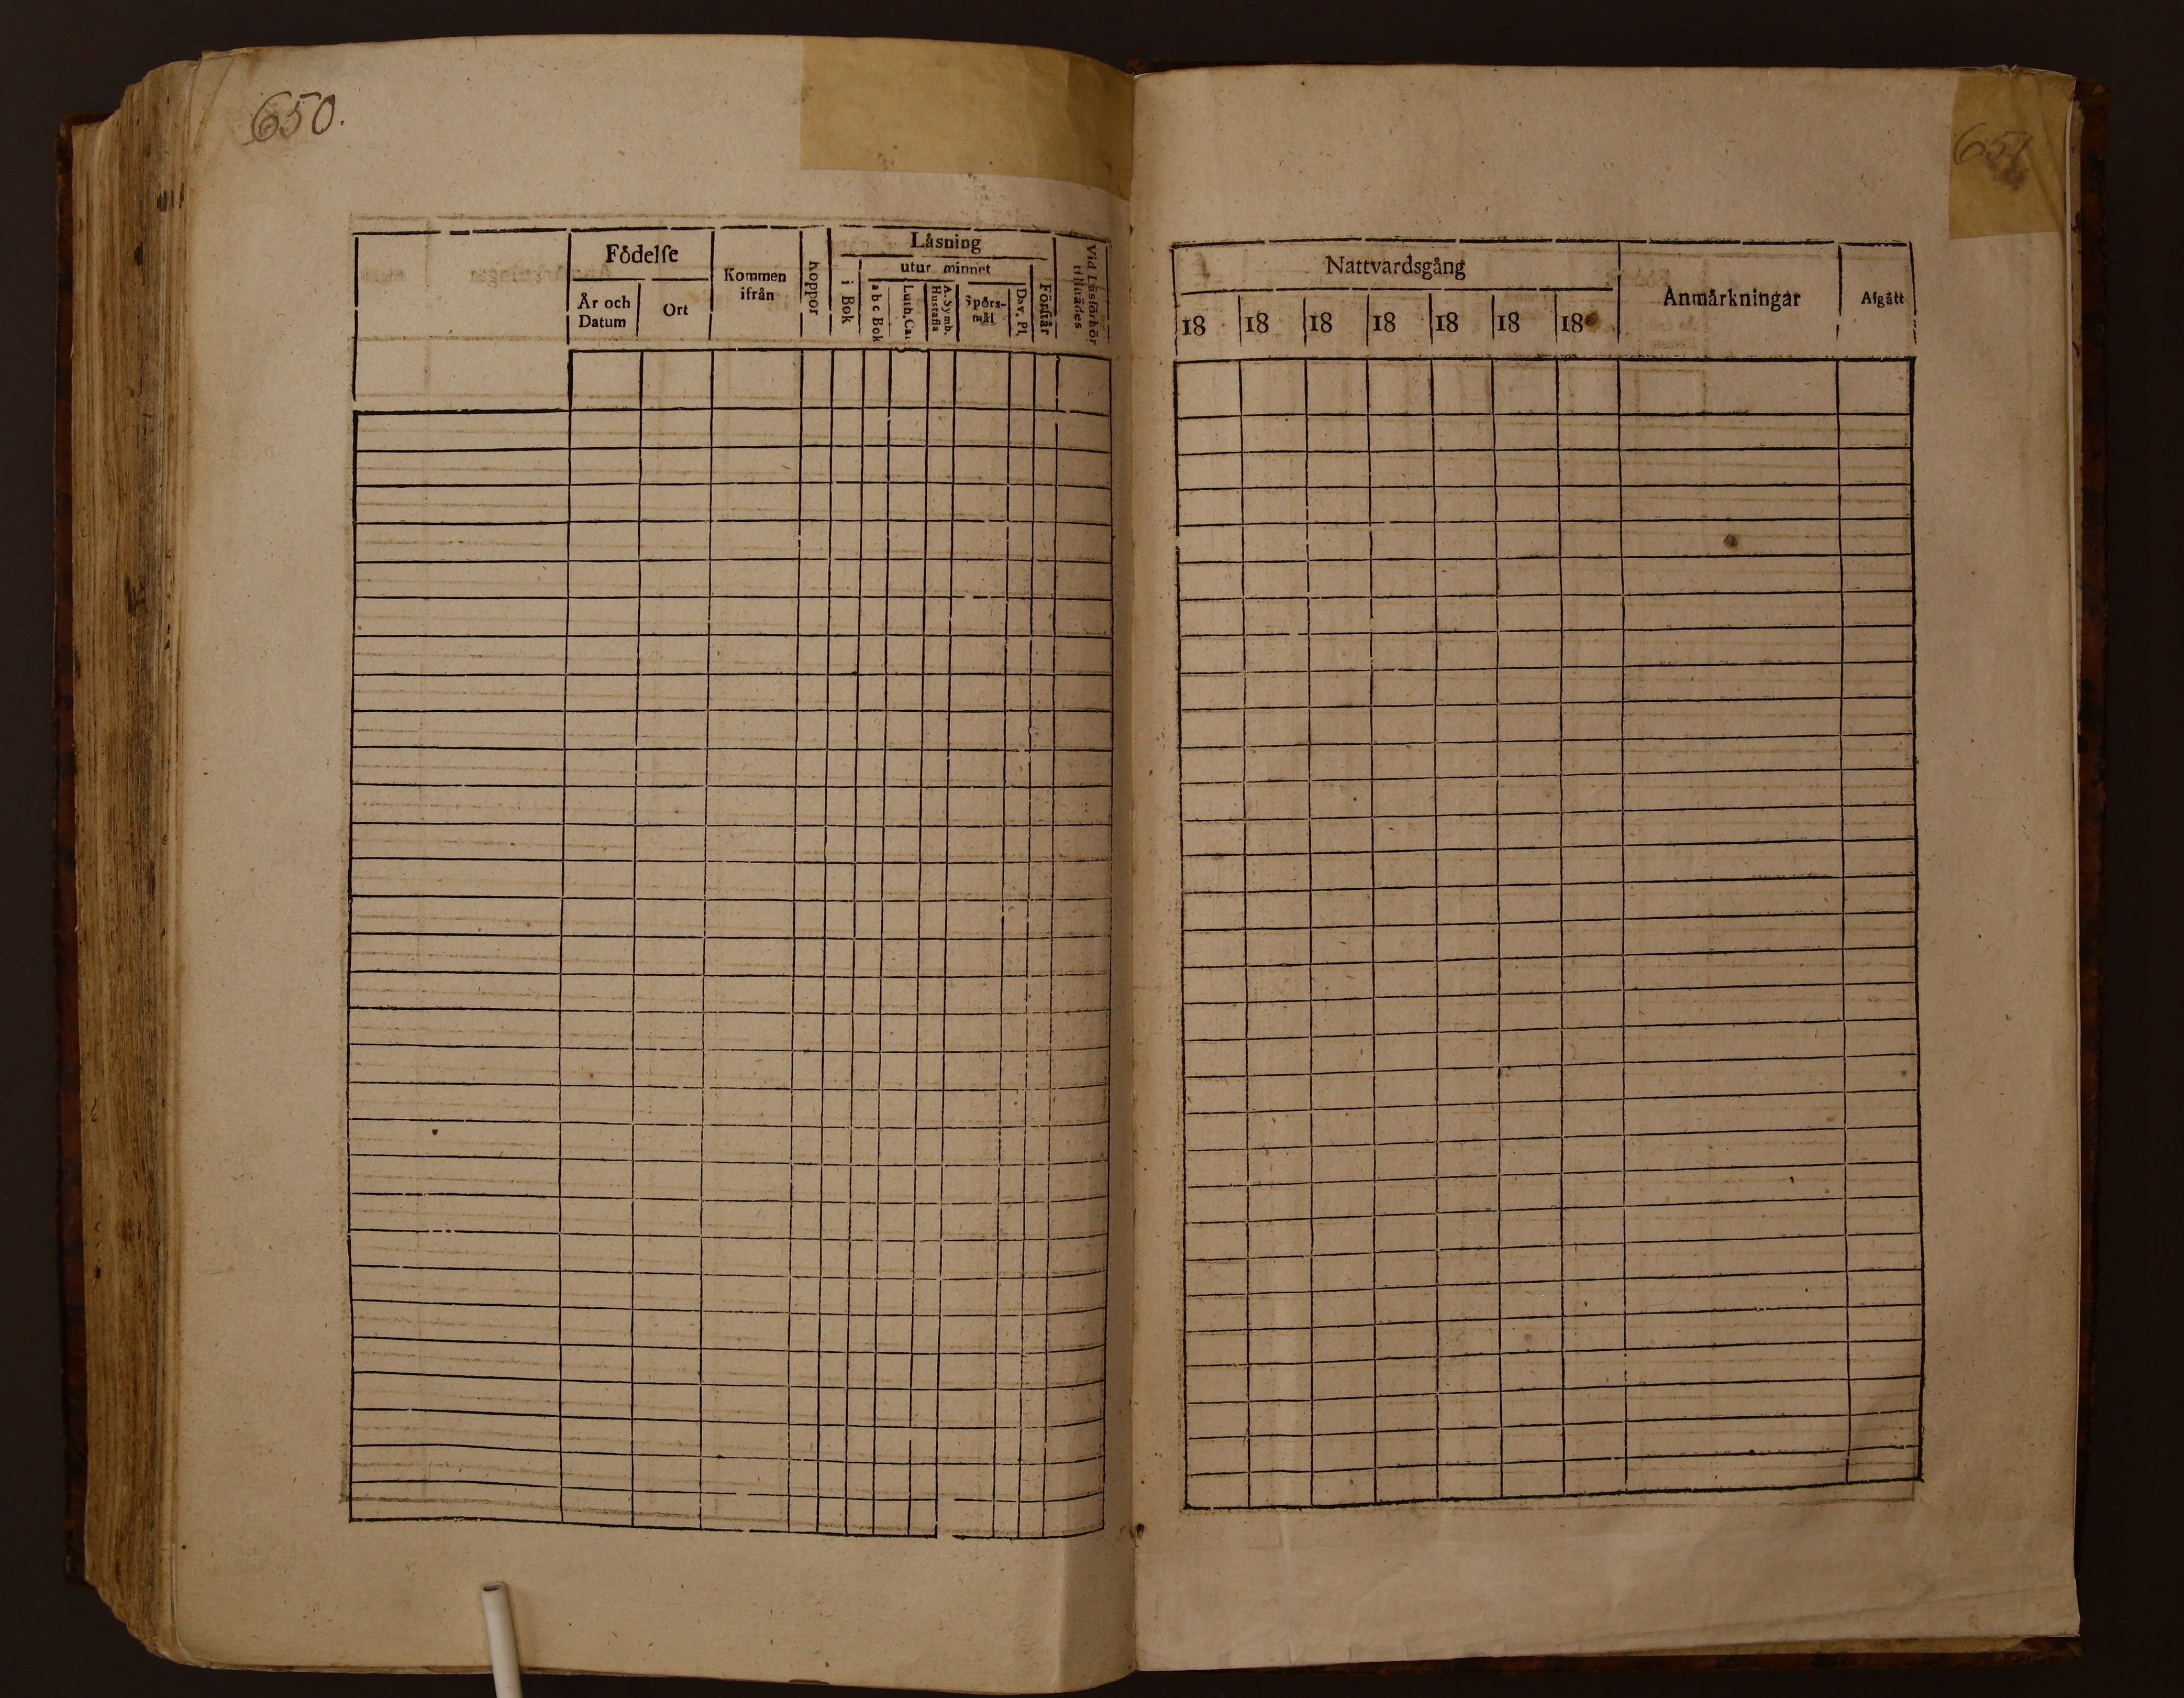 650.
Födelſe
År och Datum
Ort
Kommen ifrån
Koppor
Låsning
i Bok
utur minnet
a b c Bok
Luth. Cat
A. Symb. Hustafla
Spörs-mål
Dav. Pſ
Förſtår
Vid Låsförhör tillſtädes
651
Nattvardsgång
18 18 18 18 18 18 18
Anmårkningar
Afgått